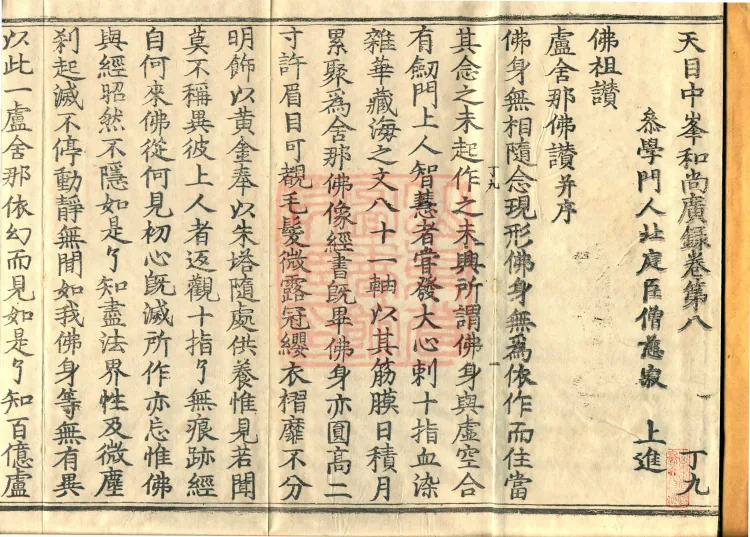 天目中峯和尚廣録卷第八 丁九
叅學門人北庭臣僧慈寂 上進
佛祖讃
盧舍那佛讃并序
佛身無相隨念現形佛身無爲依作而住當
其念之未起作之未興所謂佛身與虛空合
丁九 一
有劒門上人智慧者甞發大心刺十指血染
雜華藏海之文八十一軸以其筋膜日積月
累聚爲舍那佛像經書旣畢佛身亦圓高二
寸許眉目可覩毛髮微露冠纓衣褶靡不分
明飾以黃金奉以朱塔隨處供養惟見若聞
莫不稱異彼上人者返觀十指了無痕跡經
自何來佛從何見初心旣滅所作亦忘惟佛
與經昭然不隱如是了知盡法界性及微塵
刹起滅不停動靜無間如我佛身等無有異
以此一盧舍那依幻而見如是了知百億盧